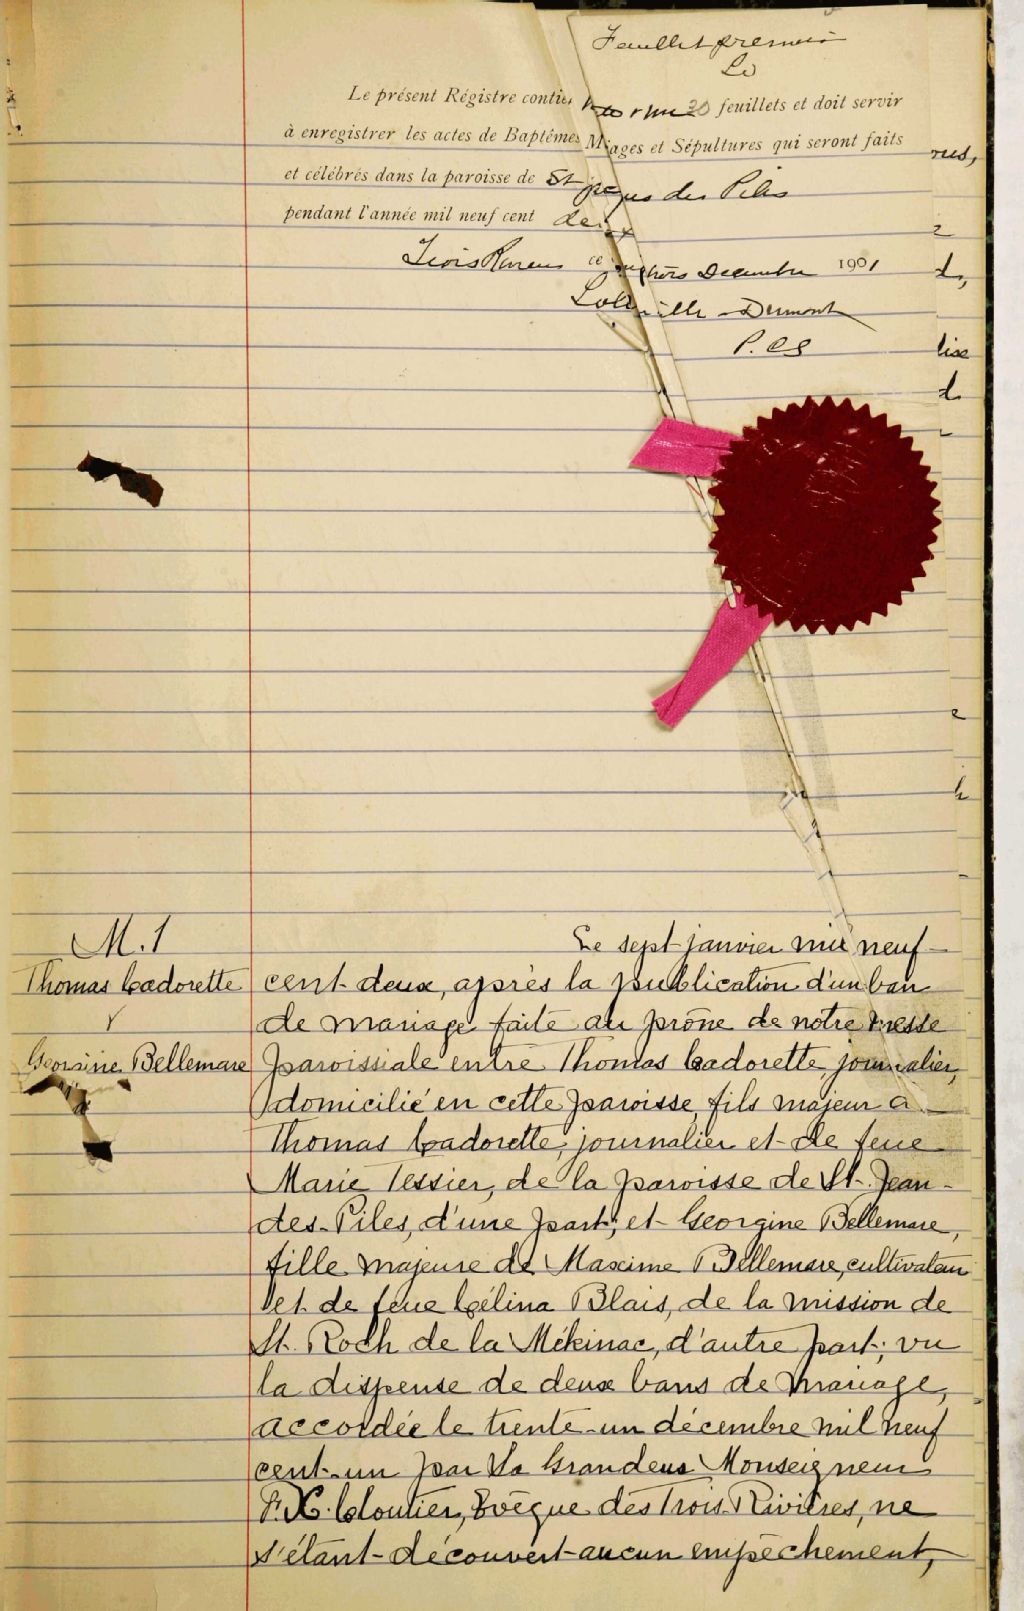 Feuillet premier
Le présent Régistre contie feuillets et doit servir
à enregistrer les actes de Baptêmes M iages et Sépultures qui seront faits
et célébrés dans la paroisse de St des Piles
pendant l'année mil neuf cent deux
ce Decembre 1901
ville Dumont
P. CS
M. 1
Thomas Cadorette
Georgine Bellemare
Le sept janvier mil neuf
cent deux, après la publication d'un ban
de mariage faite au prône de notre messe
paroissiale entre Thomas Cadorette, journalier,
domicilié en cette paroisse, fils majeur
Thomas Cadorette, journalier et de feue
Marie Tessier, de la paroisse de St. Jean
des Piles, d'une part, et Georgine Bellemare,
fille majeure de Maxime Bellemare, cultivateur
et de feue Célina Blais, de la mission de
St. Roch de la Mékinac, d'autre part; vu
la dispense de deux bans de mariage,
accordée le trente-un décembre mil neuf
cent-un par Sa Grandeur Monseigneur
F. X. Cloutier, Evêque des Trois Rivières, ne
s'étant découvert aucun empêchement,